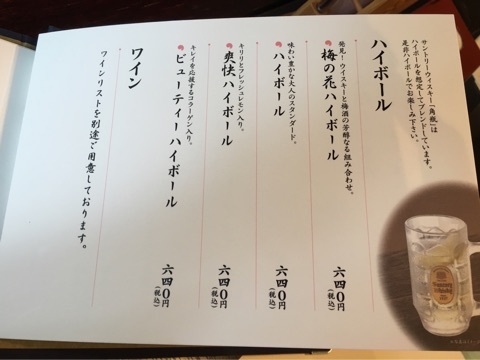 サントリーウィスキー「角瓶」は
ハイボールを想定してブレンドしています。
是非ハイボールでお楽しみ下さい。
ハイボール
発見!ウイスキーと梅酒の芳醇なる組み合わせ。
梅の花ハイボール 六四〇円(税込)
味わい豊かな大人のスタンダード。
ハイボール 六四〇円(税込)
キリリとフレッシュレモン入り。
爽快ハイボール 六四〇円(税込)
キレイを応援するコラーゲン入り。
ビューティーハイボール 六四〇円(税込)
ワイン
ワインリストを別途ご用意しております。